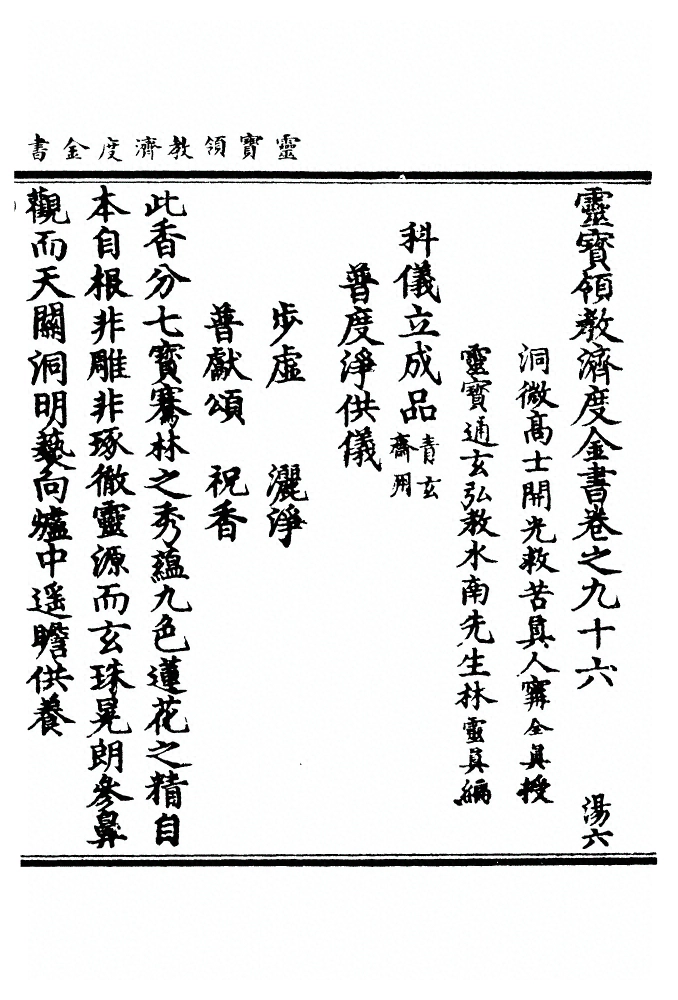 靈寶領教濟度金書
靈寶領教濟度金書卷之九十六 湯六
洞微高士開光救苦真人寗全真授
靈寶通玄弘教水南先生林靈真編
科儀立成品 青玄齋用
普度淨供儀
步虛 灑淨
普獻頌 祝香
此香分七寶騫林之秀蘊九色蓮花之精自
本自根非雕非琢徹靈源而玄珠晃朗參鼻
觀而天關洞明爇向爐中遥瞻供養